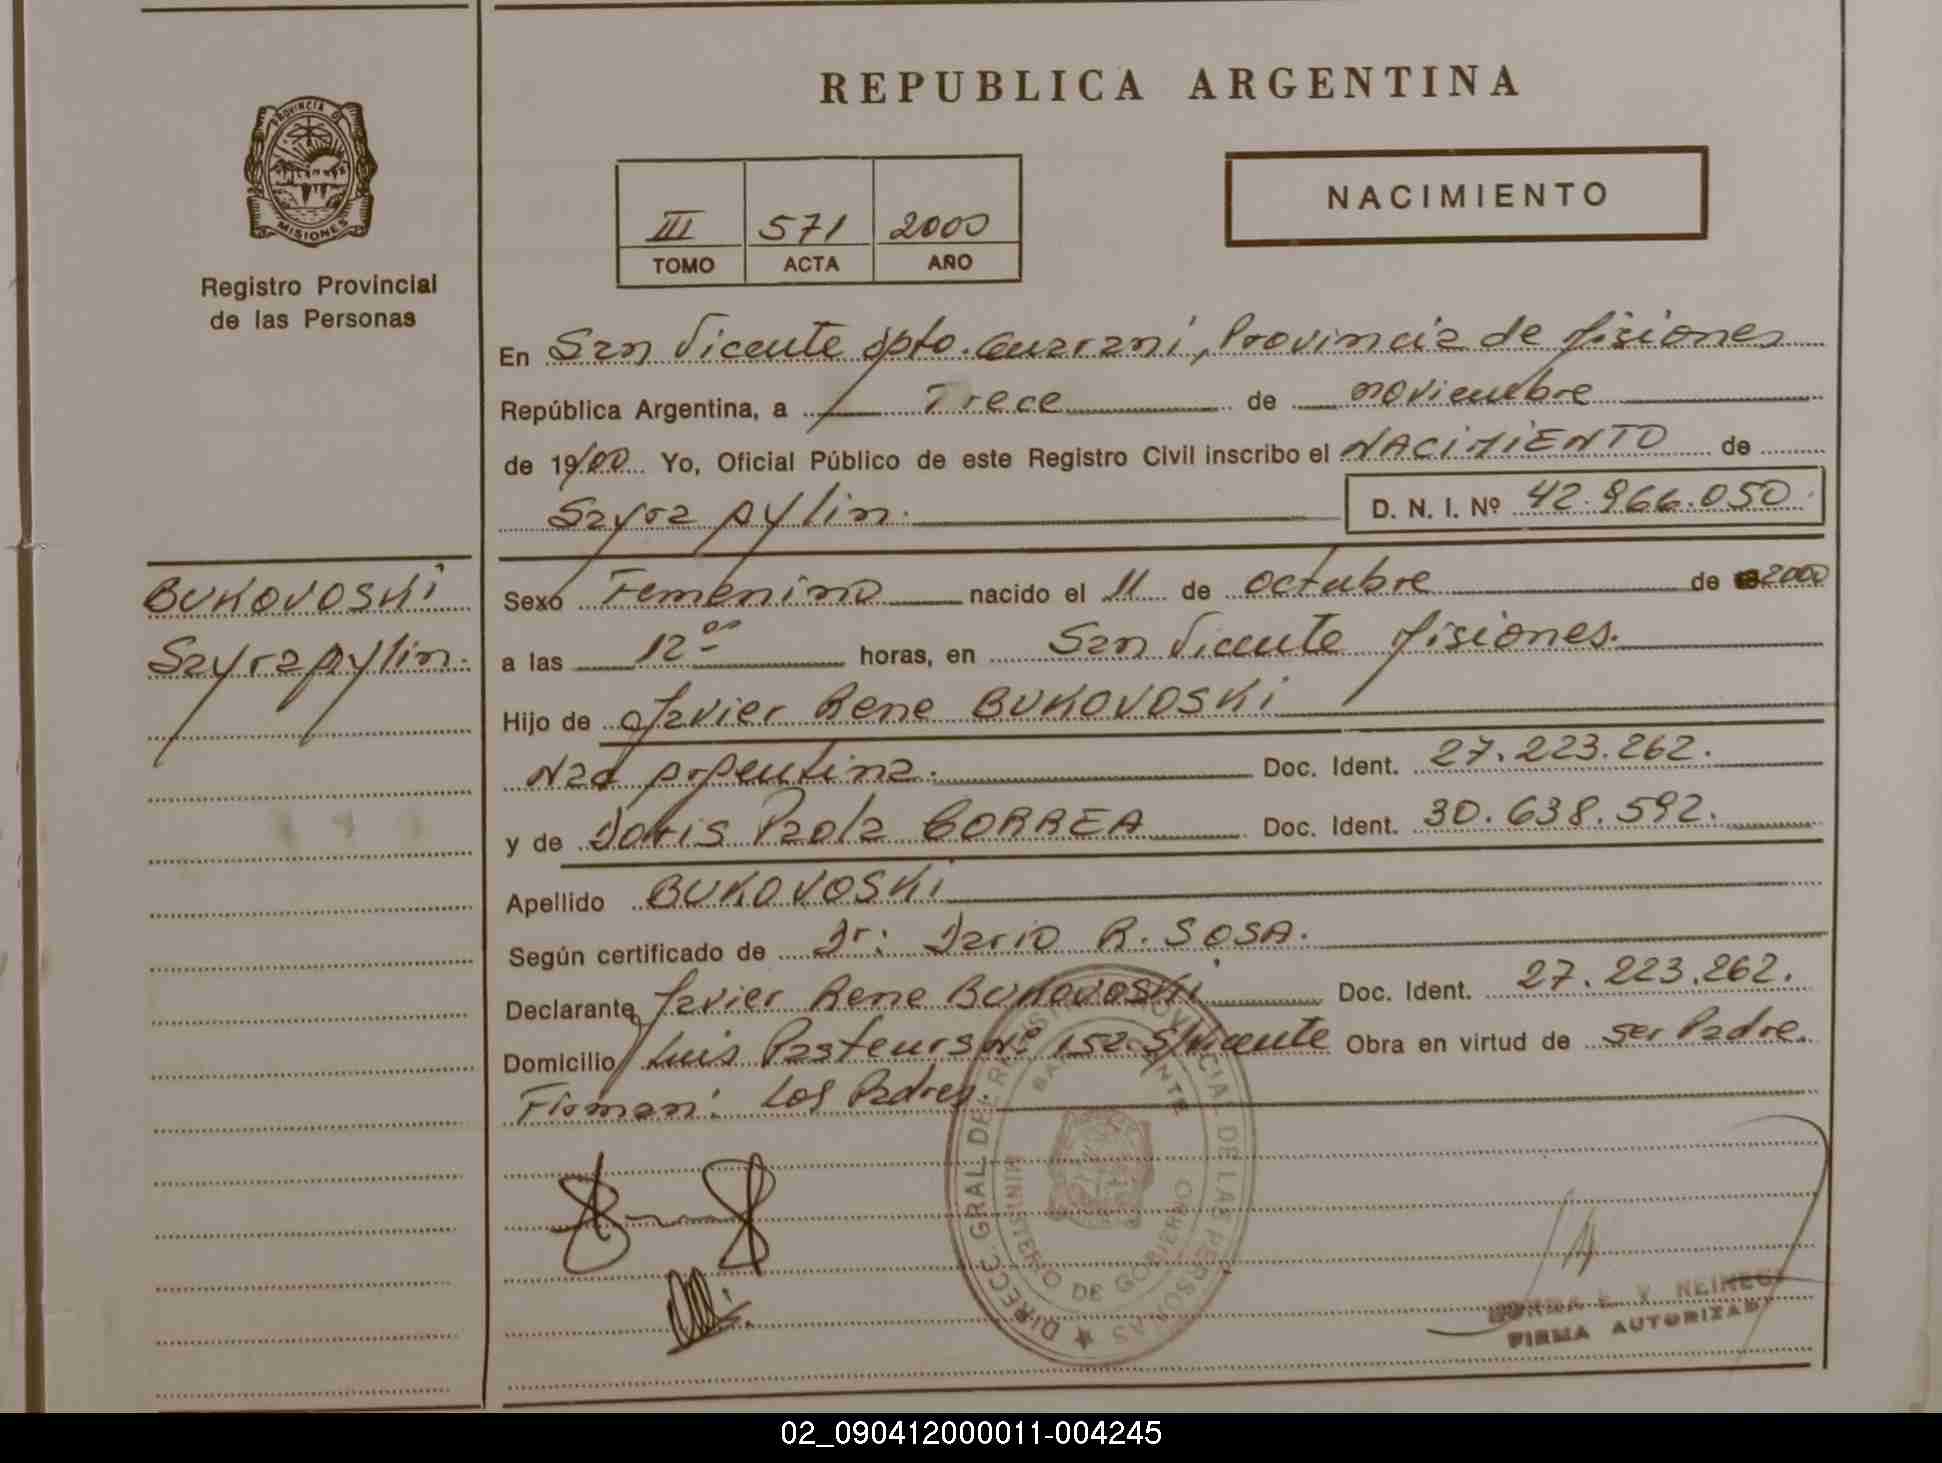 REPUBLICA ARGENTINA
PROVINCIA DE
MISIONES
Registro Provincial
de las Personas
III 571 2000
TOMO ACTA AÑO
NACIMIENTO
En San Vicente dpto. Guarani, Provincia de Misiones
República Argentina, a Trece de noviembre
de 19/00 Yo, Oficial Público de este Registro Civil inscribo el NACIMIENTO de
Sayra Aylin. D. N. I. Nº 42.966.050.
BUKOVOSKi
Sayra Aylin.
Sexo Femenino nacido el 11 de octubre de 2000
a las 12 00 horas, en San Vicente Misiones.
Hijo de Javier Rene BUKOVOSKi
Nac Argentina. Doc. Ident. 27.223.262.
y de Doris Paola CORREA Doc. Ident. 30.638.592.
Apellido BUKOVOSKi
Según certificado de Dr: Dario R. SOSA.
Declarante Javier Rene BUKOVOSKi Doc. Ident. 27.223.262.
Domicilio Luis Pasteurs Nº 152 S/Vicente Obra en virtud de ser Padre.
Firman: Los Padres.
DIRECC. GRAL. DEL REGISTRO PROVINCIAL DE LAS PERSONAS
MINISTERIO DE GOBIERNO
FIRMA AUTORIZADA
02_090412000011-004245